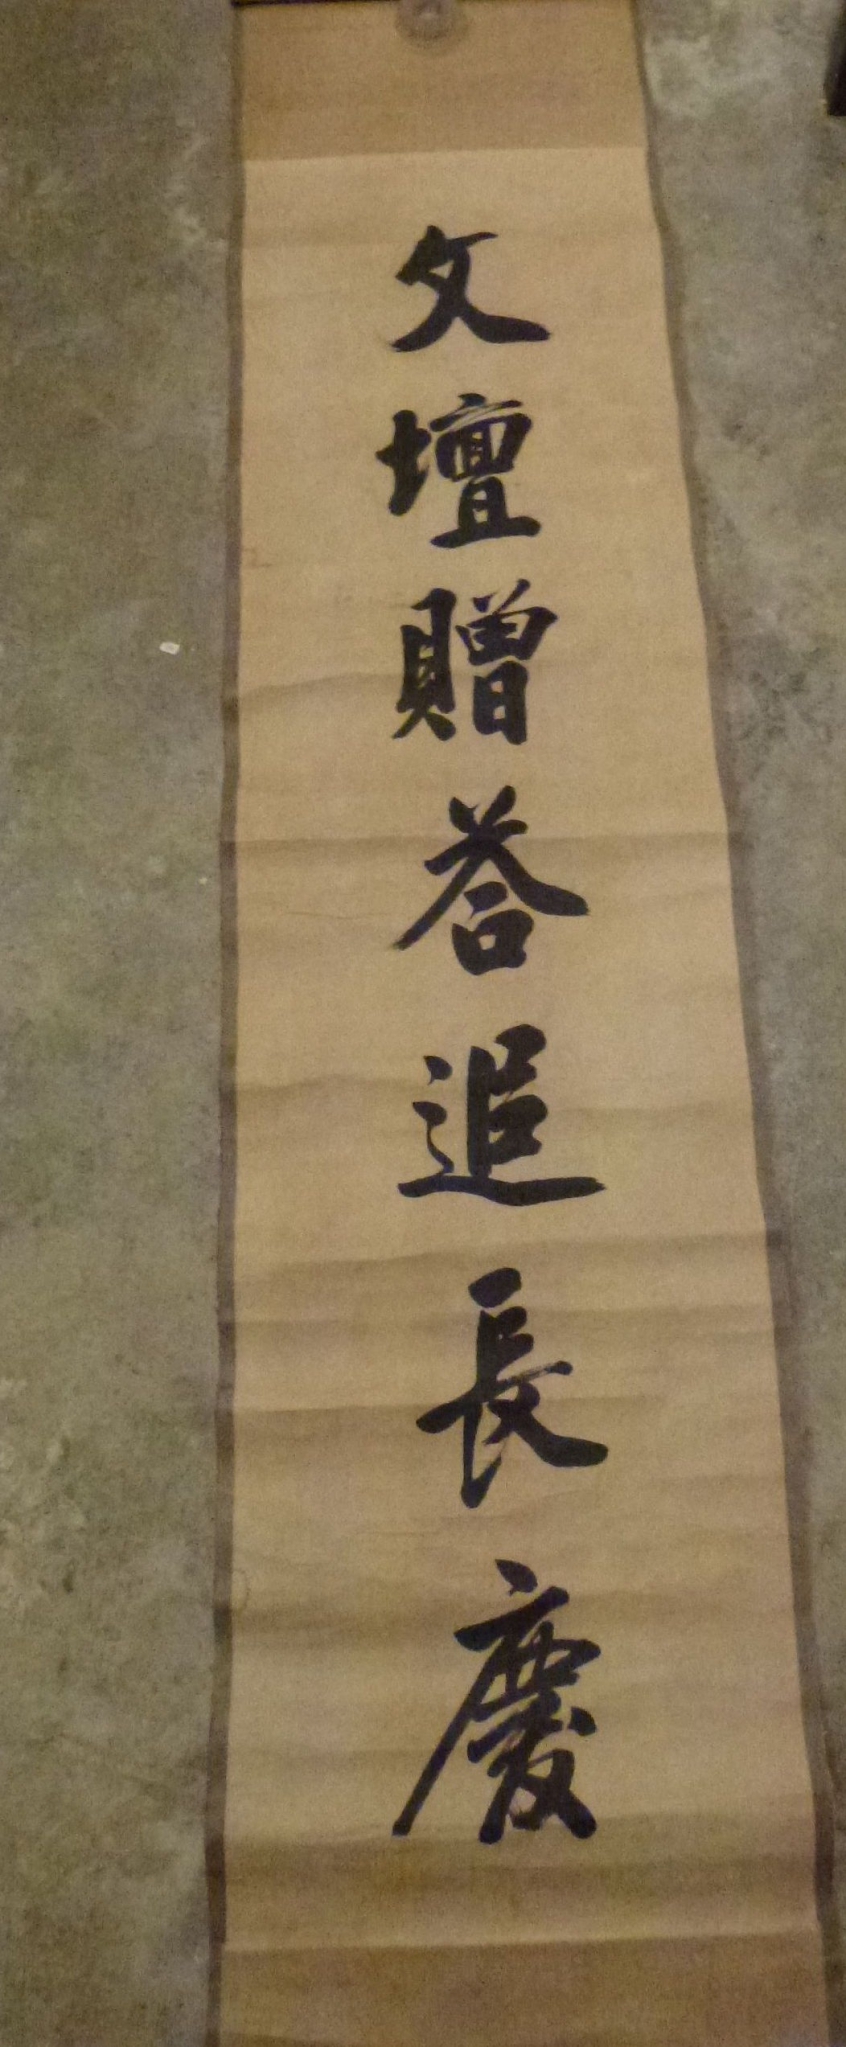 文壇贈荅追長慶